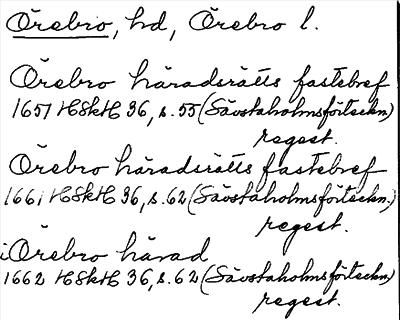 Örebro, hd, Örebro l.
Örebro häradsrätts fastebref
1657 HSkH 36, s. 55 (Sävstaholmsförteckn.)
regest.
Örebro häradsrätts fastebref
1661 HSkH 36, s. 62 (Sävstaholmsförteckn.)
regest.
Örebro härad
1662 HSkH 36, s. 62 (Sävstaholmsförteckn.)
regest.